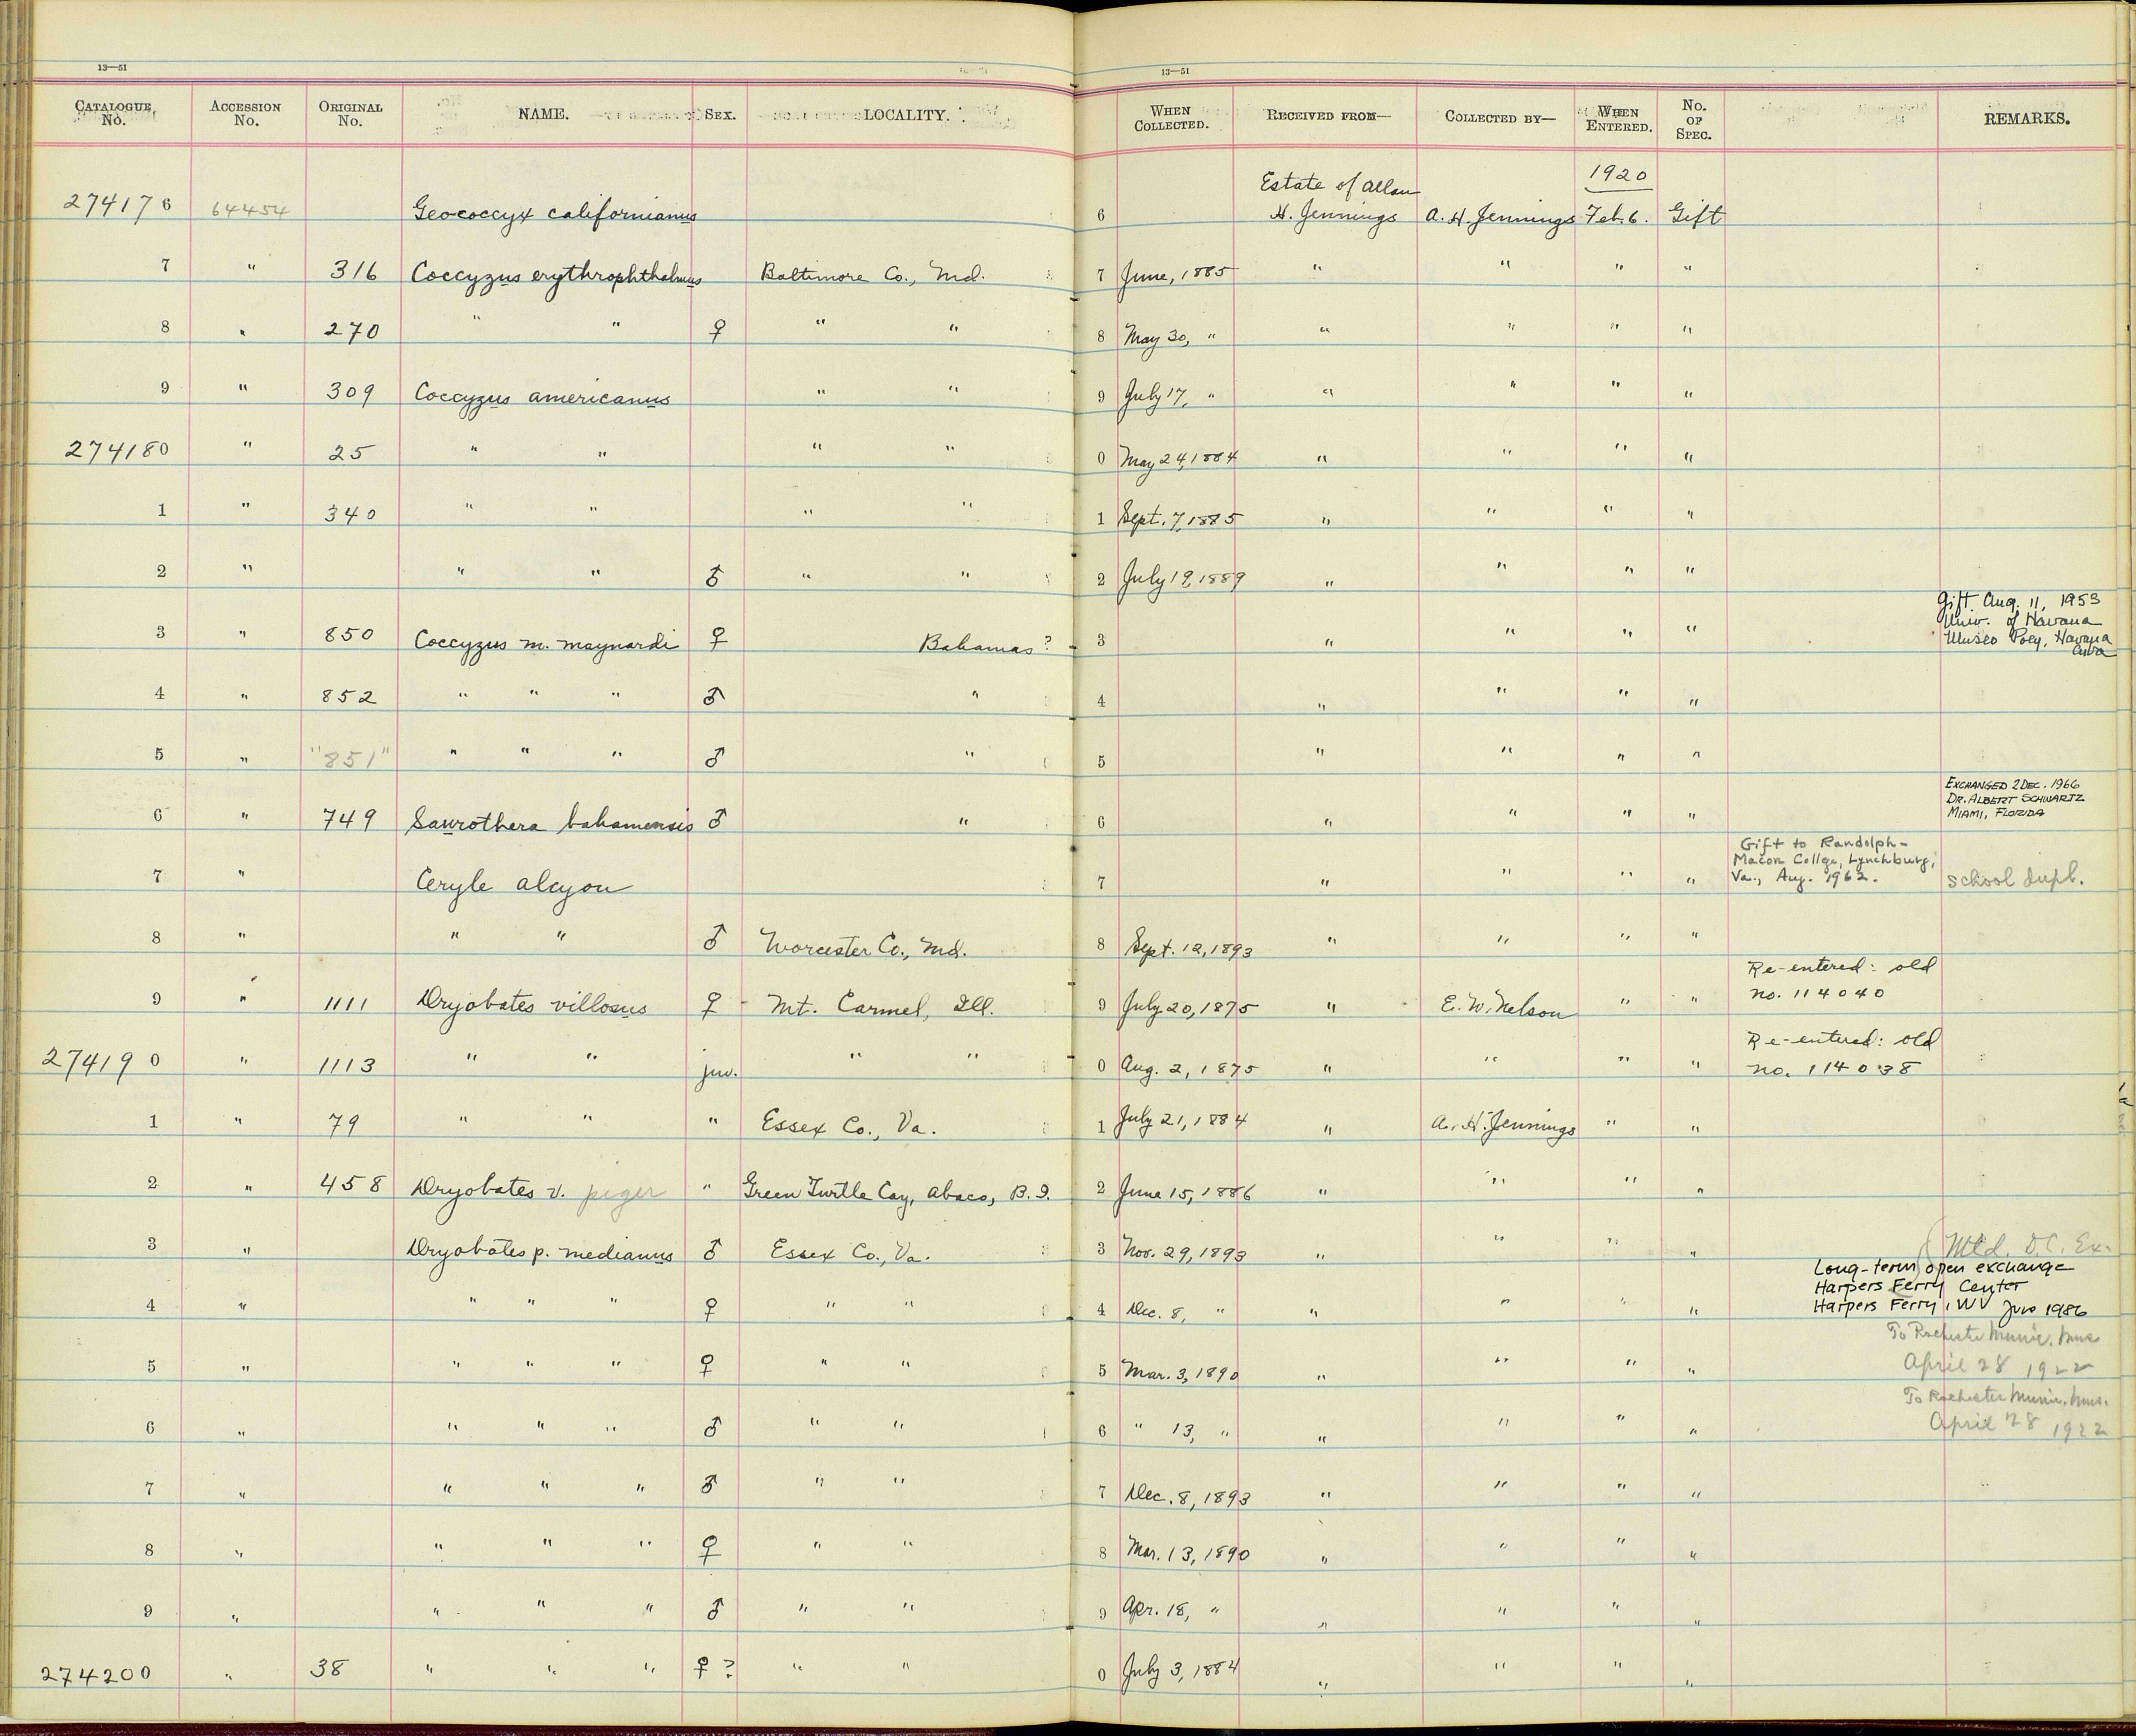 13—51
13—51
CATALOGUE No. ACCESSION No. ORIGINAL No. NAME. SEX. LOCALITY. WHEN COLLECTED. RECEIVED FROM— COLLECTED BY— WHEN ENTERED. No. OF SPEC. REMARKS.
1920
Estate of Allan
274176 64454 Geococcyx californianus 6 H. Jennings A. H. Jennings Feb. 6. Gift
7 " 316 Coccyzus erythrophthalmus Baltimore Co., Md. 7 June, 1885 " " " "
8 " 270 " " ♀ " " 8 May 30, " " " " "
9 " 309 Coccyzus americanus " " 9 July 17, " " " " "
274180 " 25 " " " " 0 May 24, 1884 " " " "
1 " 340 " " " " 1 Sept. 7, 1885 " " " "
2 " " " ♂ " " 2 July 19, 1889 " " " "
3 " 850 Coccyzus m. maynardi ♀ Bahamas? 3 " " " " Gift Aug. 11, 1953
Univ. of Havana
Museo Poey, Havana
Cuba
4 " 852 " " " ♂ " 4 " " " "
5 " "851" " " " ♂ " 5 " " " "
6 " 749 Saurothera bahamensis ♂ " 6 " " " " EXCHANGED 2 DEC. 1966
DR. ALBERT SCHWARTZ
MIAMI, FLORIDA
Gift to Randolph-
Macon Collge, Lynchburg,
7 " Ceryle alcyon 7 " " " " Va., Aug. 1962. school dupl.
8 " " " ♂ Worcester Co., Md. 8 Sept. 12, 1893 " " " "
Re-entered: old
9 " 1111 Dryobates villosus ♀ Mt. Carmel, Ill. 9 July 20, 1875 " E. W. Nelson " " no. 114040
Re-entered: old
274190 " 1113 " " juv. " " 0 Aug. 2, 1875 " " " " no. 114038
1 " 79 " " " Essex Co., Va. 1 July 21, 1884 " A. H. Jennings " "
2 " 458 Dryobates v. piger " Green Turtle Cay, Abaco, B. I. 2 June 15, 1886 " " " "
3 " Dryobates p. medianus ♂ Essex Co., Va. 3 Nov. 29, 1893 " " " " Mtd. D.C. Ex.
Long-term open exchange
Harpers Ferry Center
4 " " " " ♀ " " 4 Dec. 8, " " " " " Harpers Ferry, WV June 1986
To Rochester Munic. Mus.
5 " " " " ♀ " " 5 Mar. 3, 1890 " " " " April 28 1922
To Rochester Munic. Mus.
6 " " " " ♂ " " 6 " 13, " " " " " April 28 1922
7 " " " " ♂ " " 7 Dec. 8, 1893 " " " "
8 " " " " ♀ " " 8 Mar. 13, 1890 " " " "
9 " " " " ♂ " " 9 Apr. 18, " " " " "
274200 " 38 " " " ♀? " " 0 July 3, 1884 " " " "